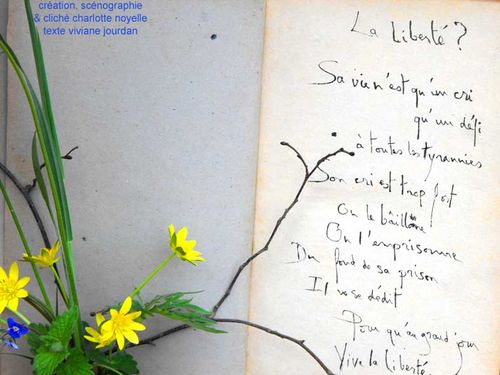 création, scénographie
& cliché charlotte noyelle
texte viviane jourdan
La liberté ?
Sa vie n'est qu'un cri
qu'un défi
à toutes les tyrannies
Son cri est trop fort
On le bâillonne
On l'emprisonne
Du fond de sa prison
Il se dédit
Pour qu'au grand jour
Vive la liberté